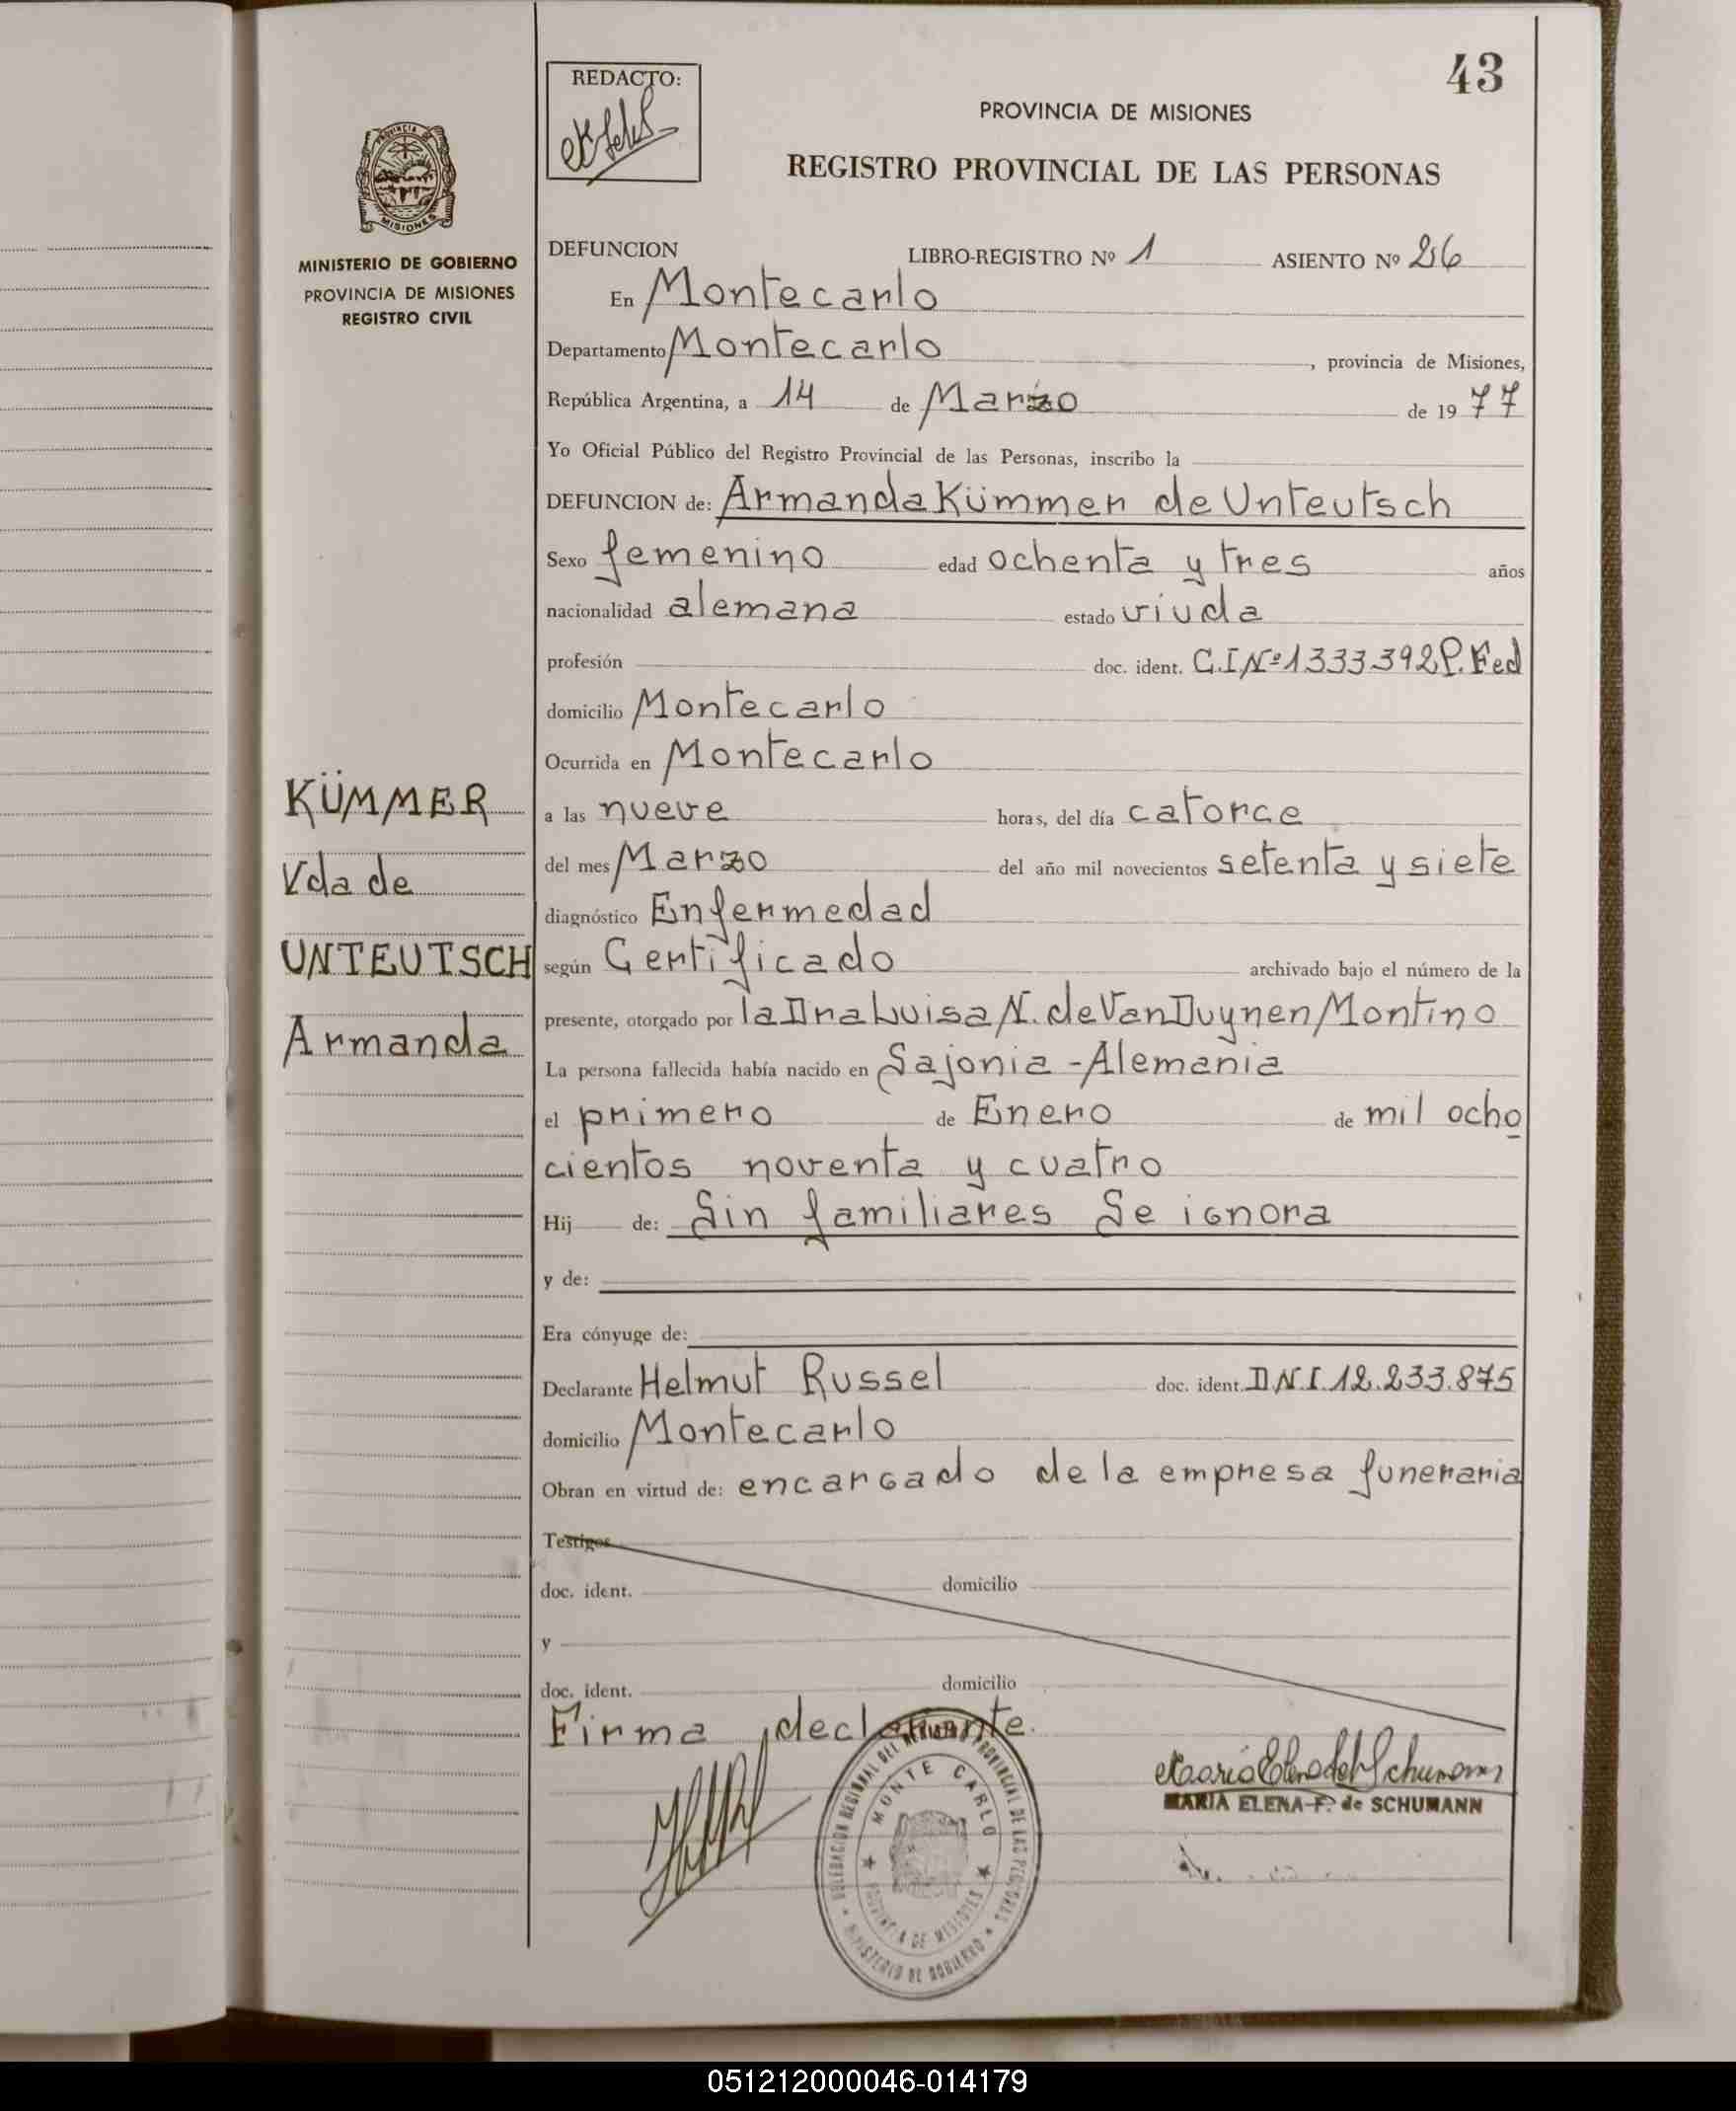 43
REDACTO:
PROVINCIA DE MISIONES
REGISTRO PROVINCIAL DE LAS PERSONAS
PROVINCIA
MISIONES
MINISTERIO DE GOBIERNO
PROVINCIA DE MISIONES
REGISTRO CIVIL
DEFUNCION LIBRO-REGISTRO Nº 1 ASIENTO Nº 26
En Montecarlo
Departamento Montecarlo, provincia de Misiones,
República Argentina, a 14 de Marzo de 1977
Yo Oficial Público del Registro Provincial de las Personas, inscribo la
DEFUNCION de: Armanda Kümmer de Unteutsch
Sexo femenino edad ochenta y tres años
nacionalidad alemana estado viuda
profesión doc. ident. C.I Nº 1333.392 P. Fed
domicilio Montecarlo
Ocurrida en Montecarlo
KÜMMER
Vda de
UNTEUTSCH
Armanda
a las nueve horas, del día catorce
del mes Marzo del año mil novecientos setenta y siete
diagnóstico Enfermedad
según Certificado archivado bajo el número de la
presente, otorgado por la Dra Luisa N. de Van Duynen Montino
La persona fallecida había nacido en Sajonia - Alemania
el primero de Enero de mil ocho
cientos noventa y cuatro
Hij de: Sin familiares Se ignora
y de:
Era cónyuge de:
Declarante Helmut Russel doc. ident. DNI. 12.233.875
domicilio Montecarlo
Obran en virtud de: encargado de la empresa funeraria
Testigos
doc. ident. domicilio
y
doc. ident. domicilio
Firma declarante.
DELEGACION REGIONAL DEL REGISTRO PROVINCIAL DE LAS PERSONAS
MONTE CARLO
PROVINCIA DE MISIONES
MINISTERIO DE GOBIERNO
MARIA ELENA F. de SCHUMANN
051212000046-014179